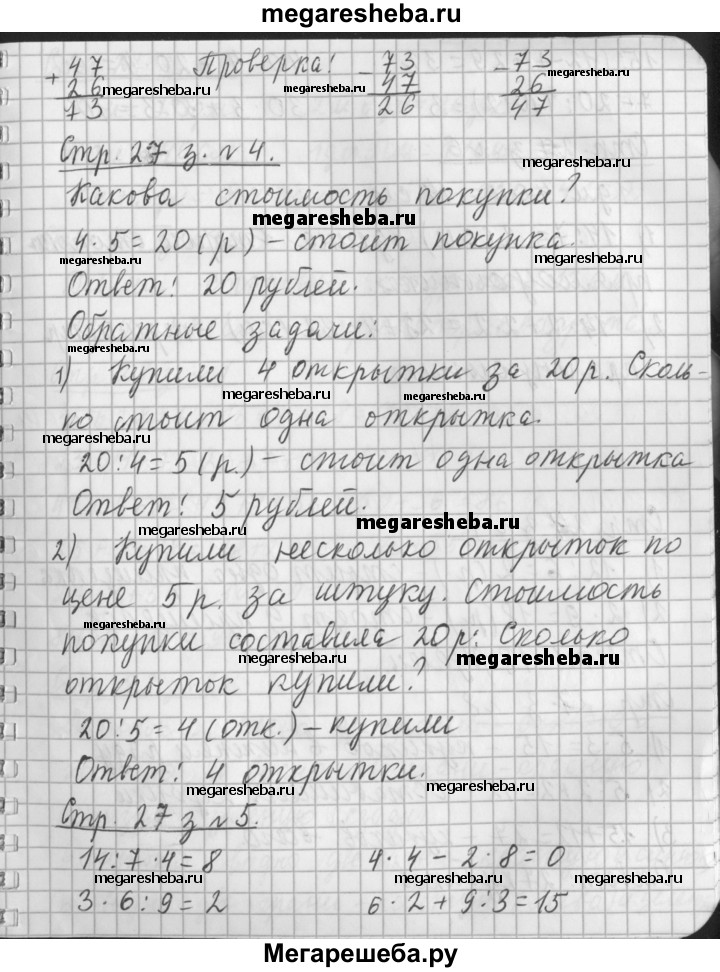 megaresheba.ru
+ 47 Проверка! - 73 - 73
26 megaresheba.ru 47 megaresheba.ru 26 megaresheba.ru
73 26 47
Стр. 27 з. №4.
Какова стоимость покупки?
megaresheba.ru
4 · 5 = 20 (р) – стоит покупка.
megaresheba.ru megaresheba.ru
Ответ: 20 рублей.
Обратные задачи:
megaresheba.ru
1) Купили 4 открытки за 20 р. Сколь-
megaresheba.ru megaresheba.ru
ко стоит одна открытка.
megaresheba.ru
20 : 4 = 5 (р.) – стоит одна открытка
Ответ: 5 рублей.
megaresheba.ru megaresheba.ru
2) Купили несколько открыток по
цене 5 р. за штуку. Стоимость
megaresheba.ru
покупки составила 20 р. Сколько
megaresheba.ru megaresheba.ru
открыток купили?
20 : 5 = 4 (отк.) – купили
Ответ: 4 открытки.
megaresheba.ru megaresheba.ru
Стр. 27 з №5.
14 : 7 · 4 = 8 4 · 4 – 2 · 8 = 0
megaresheba.ru megaresheba.ru megaresheba.ru
3 · 6 : 9 = 2 6 · 2 + 9 : 3 = 15
Мегарешеба.ру